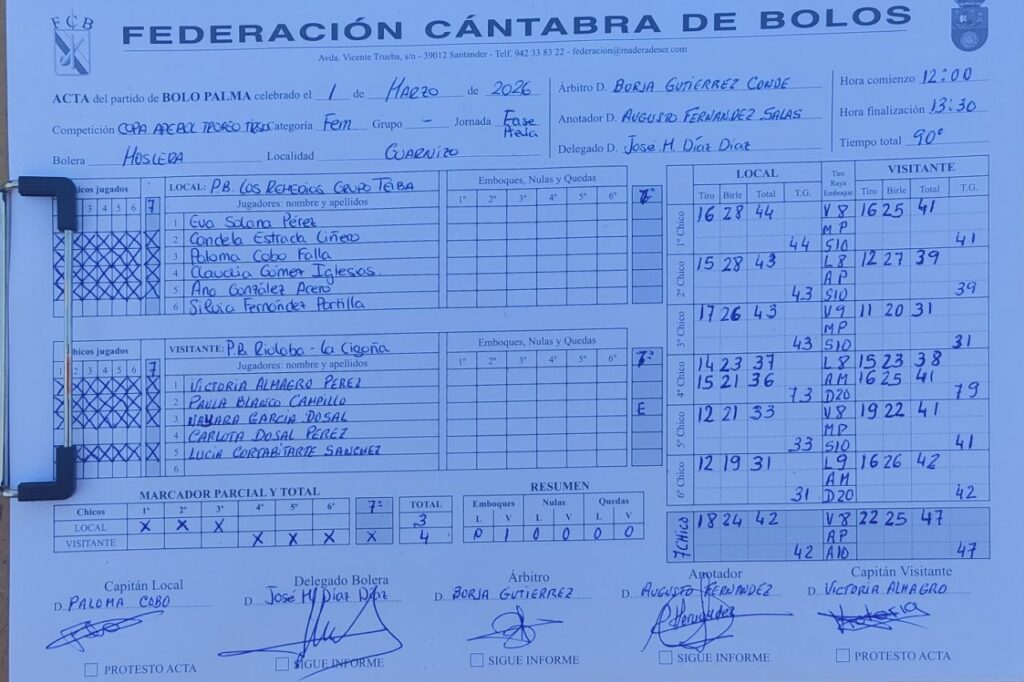 FCB
FEDERACIÓN CÁNTABRA DE BOLOS
Avda. Vicente Trueba, s/n - 39012 Santander - Telf. 942 33 83 22 - federacion@maderadeser.com
ACTA del partido de BOLO PALMA celebrado el 1 de MARZO de 2026
Árbitro D. BORJA GUTIERREZ CONDE
Hora comienzo 12:00
Competición COPA APEBOL TROFEO Categoría Fem Grupo - Jornada Fase Previa
Anotador D. AUGUSTO FERNANDEZ SALAS
Hora finalización 13:30
Bolera HOSLERA Localidad GUARNIZO
Delegado D. José M. Díaz Díaz
Tiempo total 90'
Chicos jugados
3 4 5 6 7
LOCAL: P.B. LOS REMEDIOS GRUPO TEIBA
Jugadores: nombre y apellidos
1 Eva Solana Pérez
2 Candela Estrada Ciñero
3 Paloma Cobo Falla
4 Claudia Gómez Iglesias
5 Ana González Acero
6 Silvia Fernández Portilla
Emboques, Nulas y Quedas
1º 2º 3º 4º 5º 6º 7º
Chicos jugados
1 2 3 4 5 6 7
VISITANTE: P.B. Rioloba - la Cigoña
Jugadores: nombre y apellidos
1 VICTORIA ALMAGRO PEREZ
2 PAULA BLANCO CAMPILLO
3 NAYARA GARCIA DOSAL
4 CARLOTA DOSAL PEREZ
5 LUCIA CORTABITARTE SANCHEZ
6
Emboques, Nulas y Quedas
1º 2º 3º 4º 5º 6º 7º
E
LOCAL
VISITANTE
Tiro Birle Total T.G.
Tiro Raya Emboque
Tiro Birle Total T.G.
1º Chico 16 28 44 V8 16 25 41
MP
44 S10 41
2º Chico 15 28 43 L8 12 27 39
AP
43 S10 39
3º Chico 17 26 43 V9 11 20 31
MP
43 S10 31
4º Chico 14 23 37 L8 15 23 38
15 21 36 AM 16 25 41
73 D20 79
5º Chico 12 21 33 V8 19 22 41
MP
33 S10 41
6º Chico 12 19 31 L9 16 26 42
AM
31 D20 42
7 CHICO 18 24 42 V8 22 25 47
AP
42 A10 47
MARCADOR PARCIAL Y TOTAL
Chicos 1º 2º 3º 4º 5º 6º 7º TOTAL
LOCAL X X X 3
VISITANTE X X X X 4
RESUMEN
Emboques Nulas Quedas
L V L V L V
0 1 0 0 0 0
Capitán Local
D. PALOMA COBO
Delegado Bolera
D. José M. Díaz Díaz
Árbitro
D. BORJA GUTIERREZ
Anotador
D. AUGUSTO FERNANDEZ
Capitán Visitante
D. VICTORIA ALMAGRO
PROTESTO ACTA
SIGUE INFORME
SIGUE INFORME
SIGUE INFORME
PROTESTO ACTA